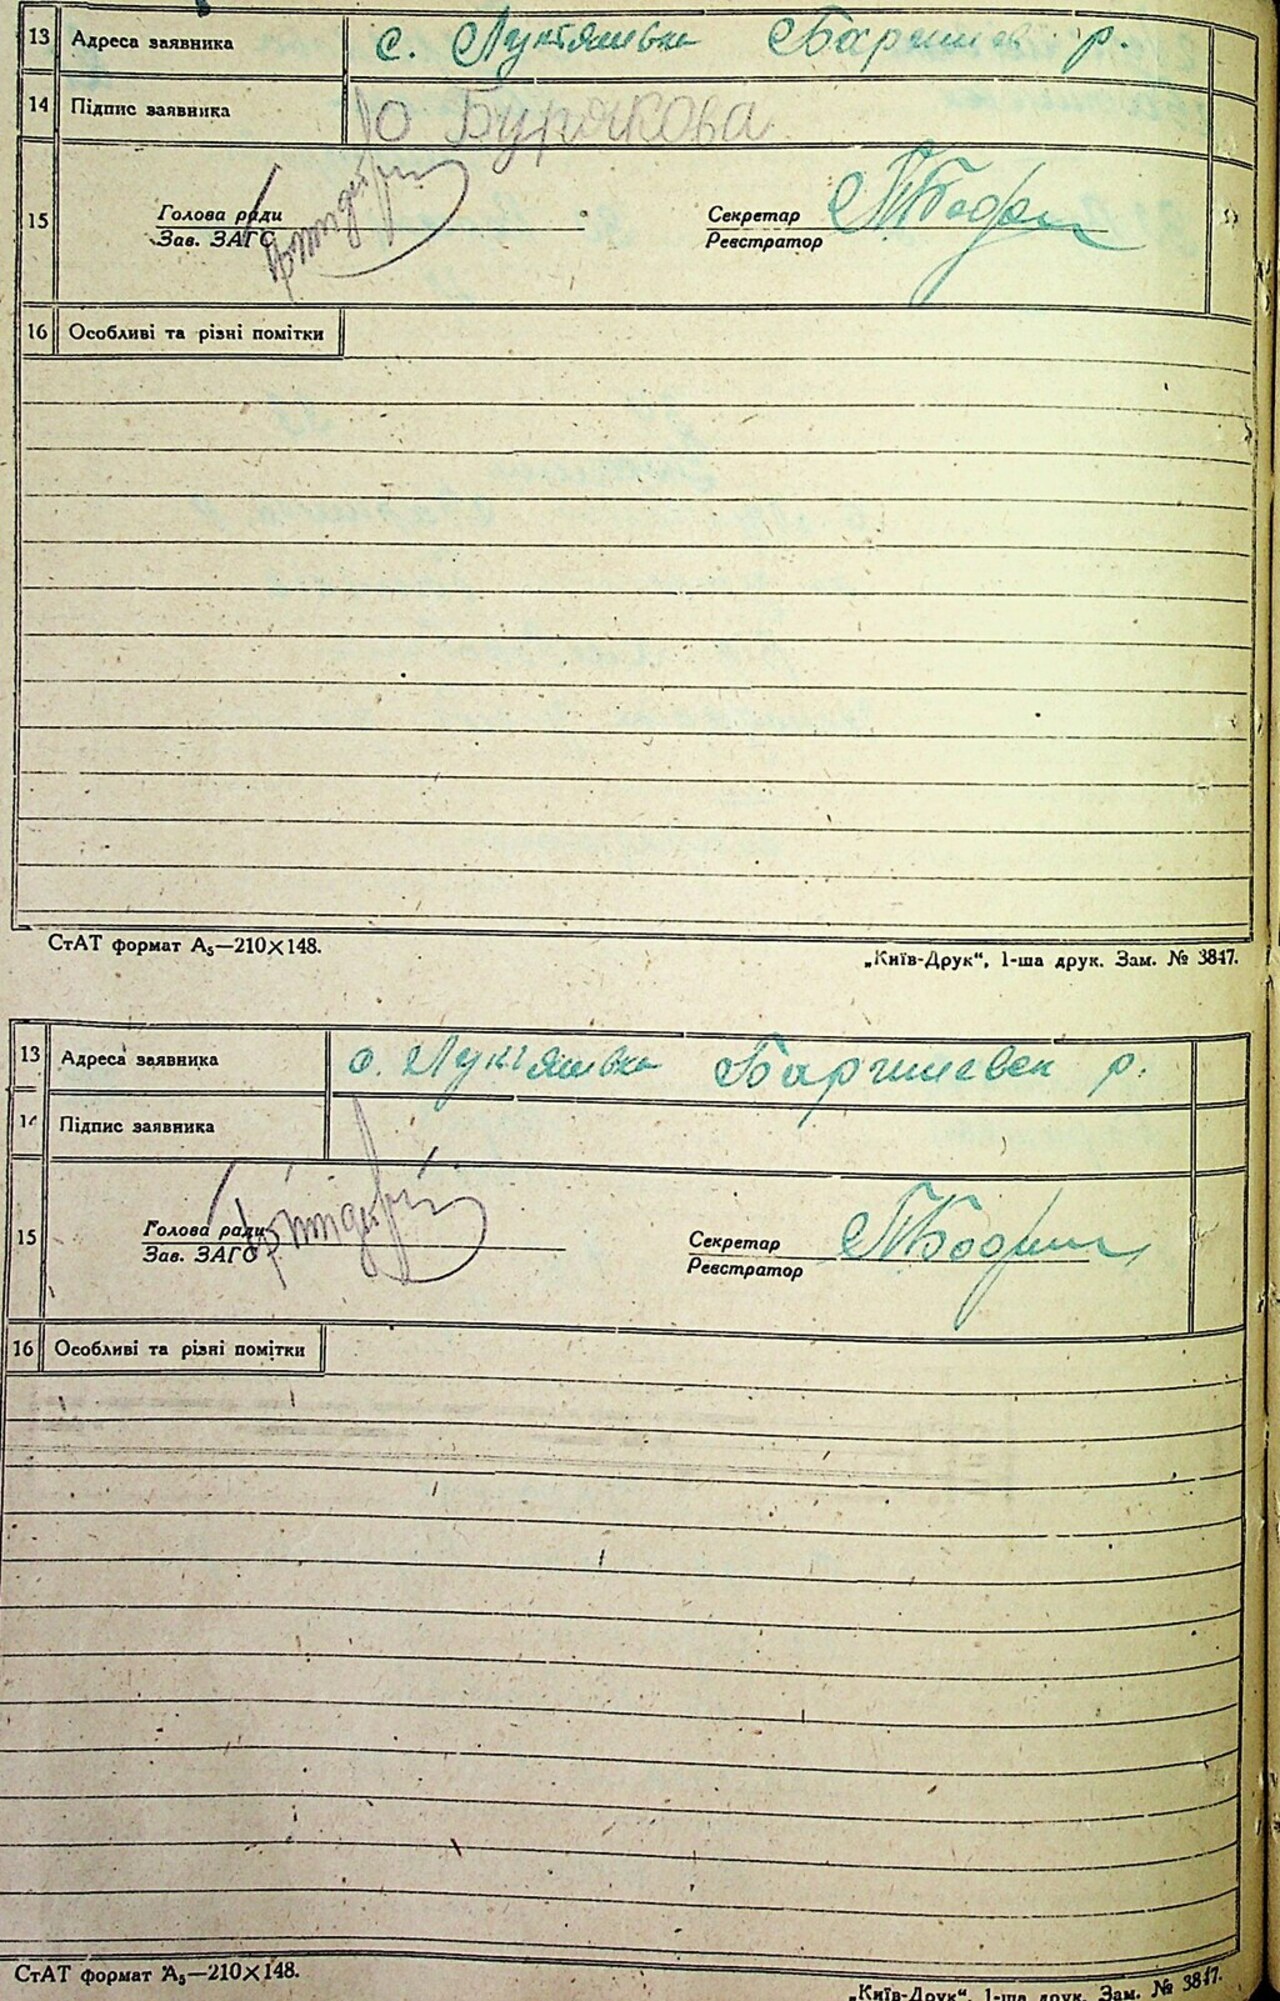 13 Адреса заявника с. Лукіяшівка Баришев р.
14 Підпис заявника Бурякова
15 Голова ради
Зав. ЗАГС
Секретар
Реєстратор
16 Особливі та різні помітки
СтАТ формат А₅—210×148.
„Київ-Друк“, 1-ша друк. Зам. № 3847.
13 Адреса заявника с. Лукіяшівка Баришевск р.
14 Підпис заявника
15 Голова ради
Зав. ЗАГС
Секретар
Реєстратор
16 Особливі та різні помітки
СтАТ формат А₅—210×148.
„Київ-Друк“, 1-ша друк. Зам. № 3847.